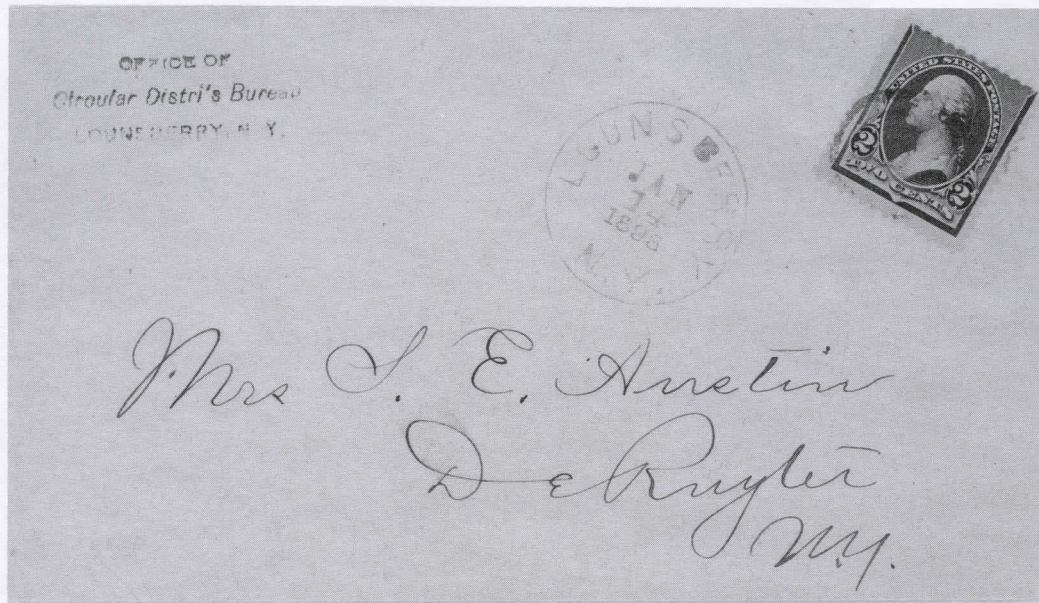 OFFICE OF
Circular Distri's Bureau
LOUNSBERRY, N. Y.
LOUNSBERRY
JAN
14
N. Y.
UNITED STATES POSTAGE
2 2
TWO CENTS
Mrs S. E. Austin
De Ruyter
N.Y.